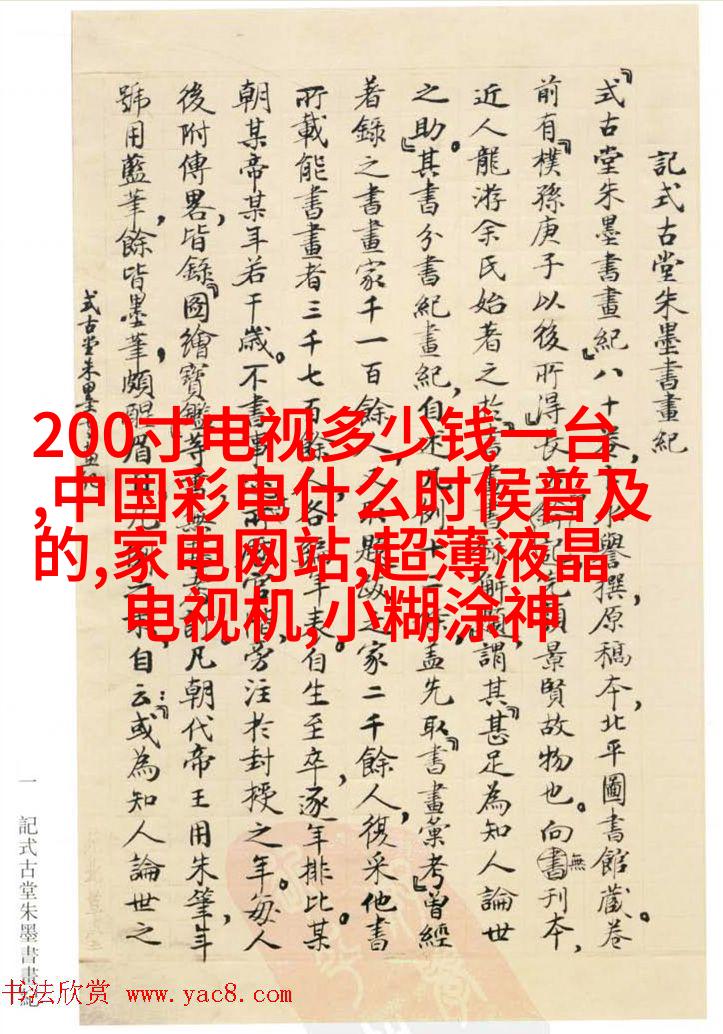 記式古堂朱墨書畫紀
『式古堂朱墨書畫紀』八十卷,永譽撰,原稿本,北平圖書館藏。卷
前有『樸孫庚子以後所得』長景賢故物也。向無刊本,
近人龍游余氏始著之於『書畫書錄解題』,謂其『甚足為知人論世
之助。』其書分書紀畫紀,自述凡例十蓋先取『書畫彙考』曾經
著錄之書畫家千一百餘人,又家二千餘人,復采他書
所載能書畫者三千七百餘人各年表。自生至卒,逐年排比某
朝某帝某年若干歲。不書事官階,旁注於封授之年。每人
後附傳畧,皆錄『圖繪寶鑑』等書凡朝代帝王用朱筆,年
號用藍筆,餘皆墨筆,頗醒眉自云:或為知人論世之
式古堂朱墨書畫紀
一 記式古堂朱墨書畫紀
200寸电视多少钱一台
,中国彩电什么时候普及
的,家电网站,超薄液晶
电视机,小糊涂神
书法欣赏 www.yac8.com